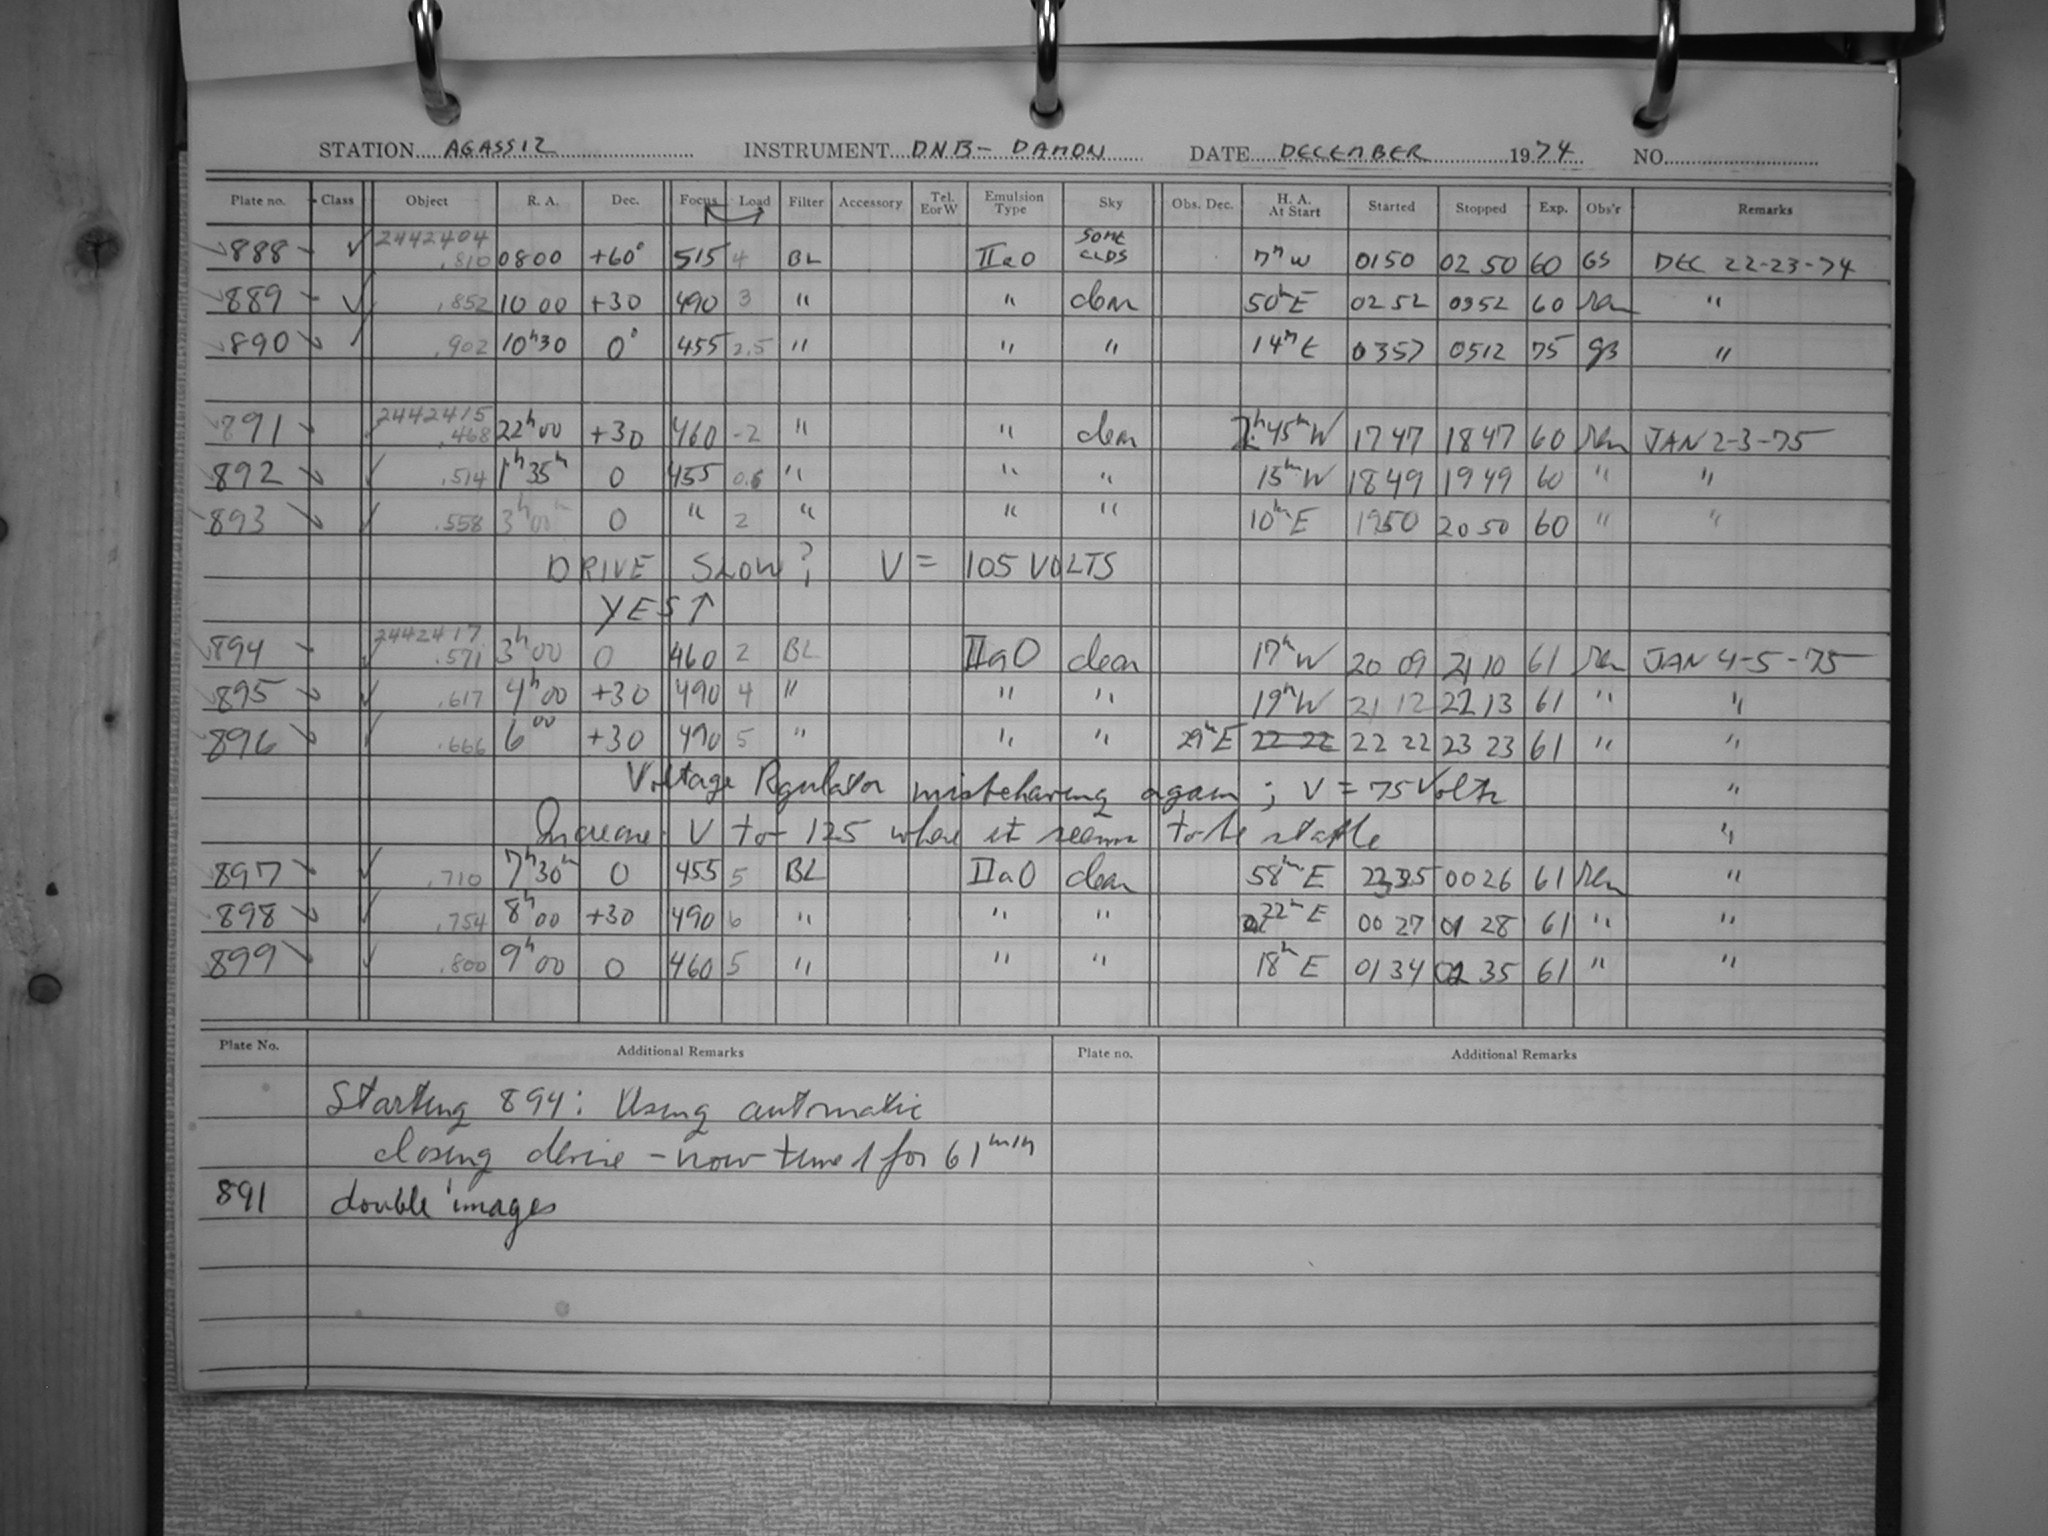 STATION AGASSIZ INSTRUMENT DNB - DAMON DATE DECEMBER 1974 NO.
Plate no. Class Object R. A. Dec. Focus Load Filter Accessory Tel. E or W Emulsion Type Sky Obs. Dec. H. A. At Start Started Stopped Exp. Obs'r Remarks
888 ✓ 2442404 .810 0800 +60° 515 4 BL IIaO SOME CLDS 7m W 0150 02 50 60 GS DEC 22-23-74
889 ✓ .852 10 00 +30 490 3 " " clear 50m E 02 52 0352 60 " 
890 ✓ .902 10h30 0° 455 2.5 " " " 14m E 0357 0512 75 "
891 ✓ 2442415 .468 22h00 +30 460 -2 " " clear 2h45m W 1747 1847 60 JAN 2-3-75
892 ✓ .514 1h35m 0 455 0.5 " " " 15m W 1849 1949 60 " "
893 ✓ .558 3h00m 0 " 2 " " " 10m E 1950 20 50 60 " "
DRIVE SLOW?; V = 105 VOLTS
YES↑
894 ✓ 2442417 .571 3h00 0 460 2 BL IIaO clear 17m W 20 09 21 10 61 JAN 4-5-75
895 ✓ .617 4h00 +30 490 4 " " " 19m W 21 12 22 13 61 " "
896 ✓ .666 6 00 +30 490 5 " " " 29m E 22 22 22 22 23 23 61 " "
Voltage Regulator misbehaving again; V = 75 Volts "
Increase V to 125 where it seems to be stable "
897 ✓ .710 7h30m 0 455 5 BL IIaO clear 58m E 2325 0026 61 "
898 ✓ .754 8h00 +30 490 6 " " " 22m E 00 27 01 28 61 " "
899 ✓ .800 9h00 0 460 5 " " " 18m E 01 34 02 35 61 " "
Plate No. Additional Remarks Plate no. Additional Remarks
Starting 894: Using automatic
closing device - now timed for 61 min
891 double images